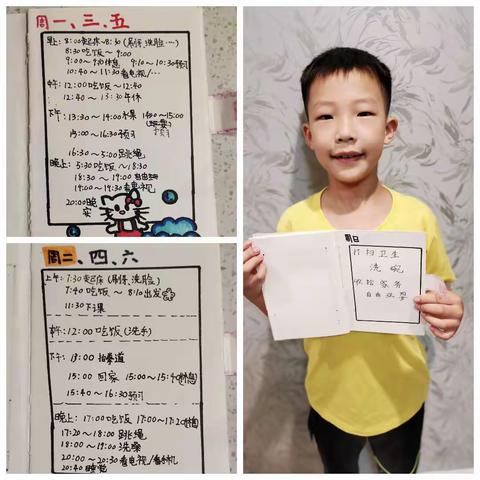 周一、三、五
早上: 8:00起床~8:30 (刷牙,洗脸…)
8:30吃饭~9:00
9:00~ 休息 9:10~10:30预习
10:40~11:30看电视/…
中午: 12:00吃饭~12:40
12:40~13:30午休
下午: 13:30~14:00水果 14:00~15:00
15:00~16:30预习
16:30~5:00跳绳
晚上: 5:30吃饭~18:30
18:30~19:00自由
19:00~19:30看电视
20:00晚安
周二、四、六
上午: 7:30起床 (刷牙,洗脸)
7:40吃饭~8:10出发
11:30下课
中午: 12:00吃饭(洗手)
下午: 13:00跆拳道
15:00回家 15:00~15:40休息
15:40~16:30预习
晚上: 17:00吃饭 17:00~17:20休息
17:20~18:00跳绳
18:00~19:00洗澡
20:00~20:30看电视/看手机
20:40睡觉
周日
打扫卫生
洗碗
收拾家务
自由玩耍